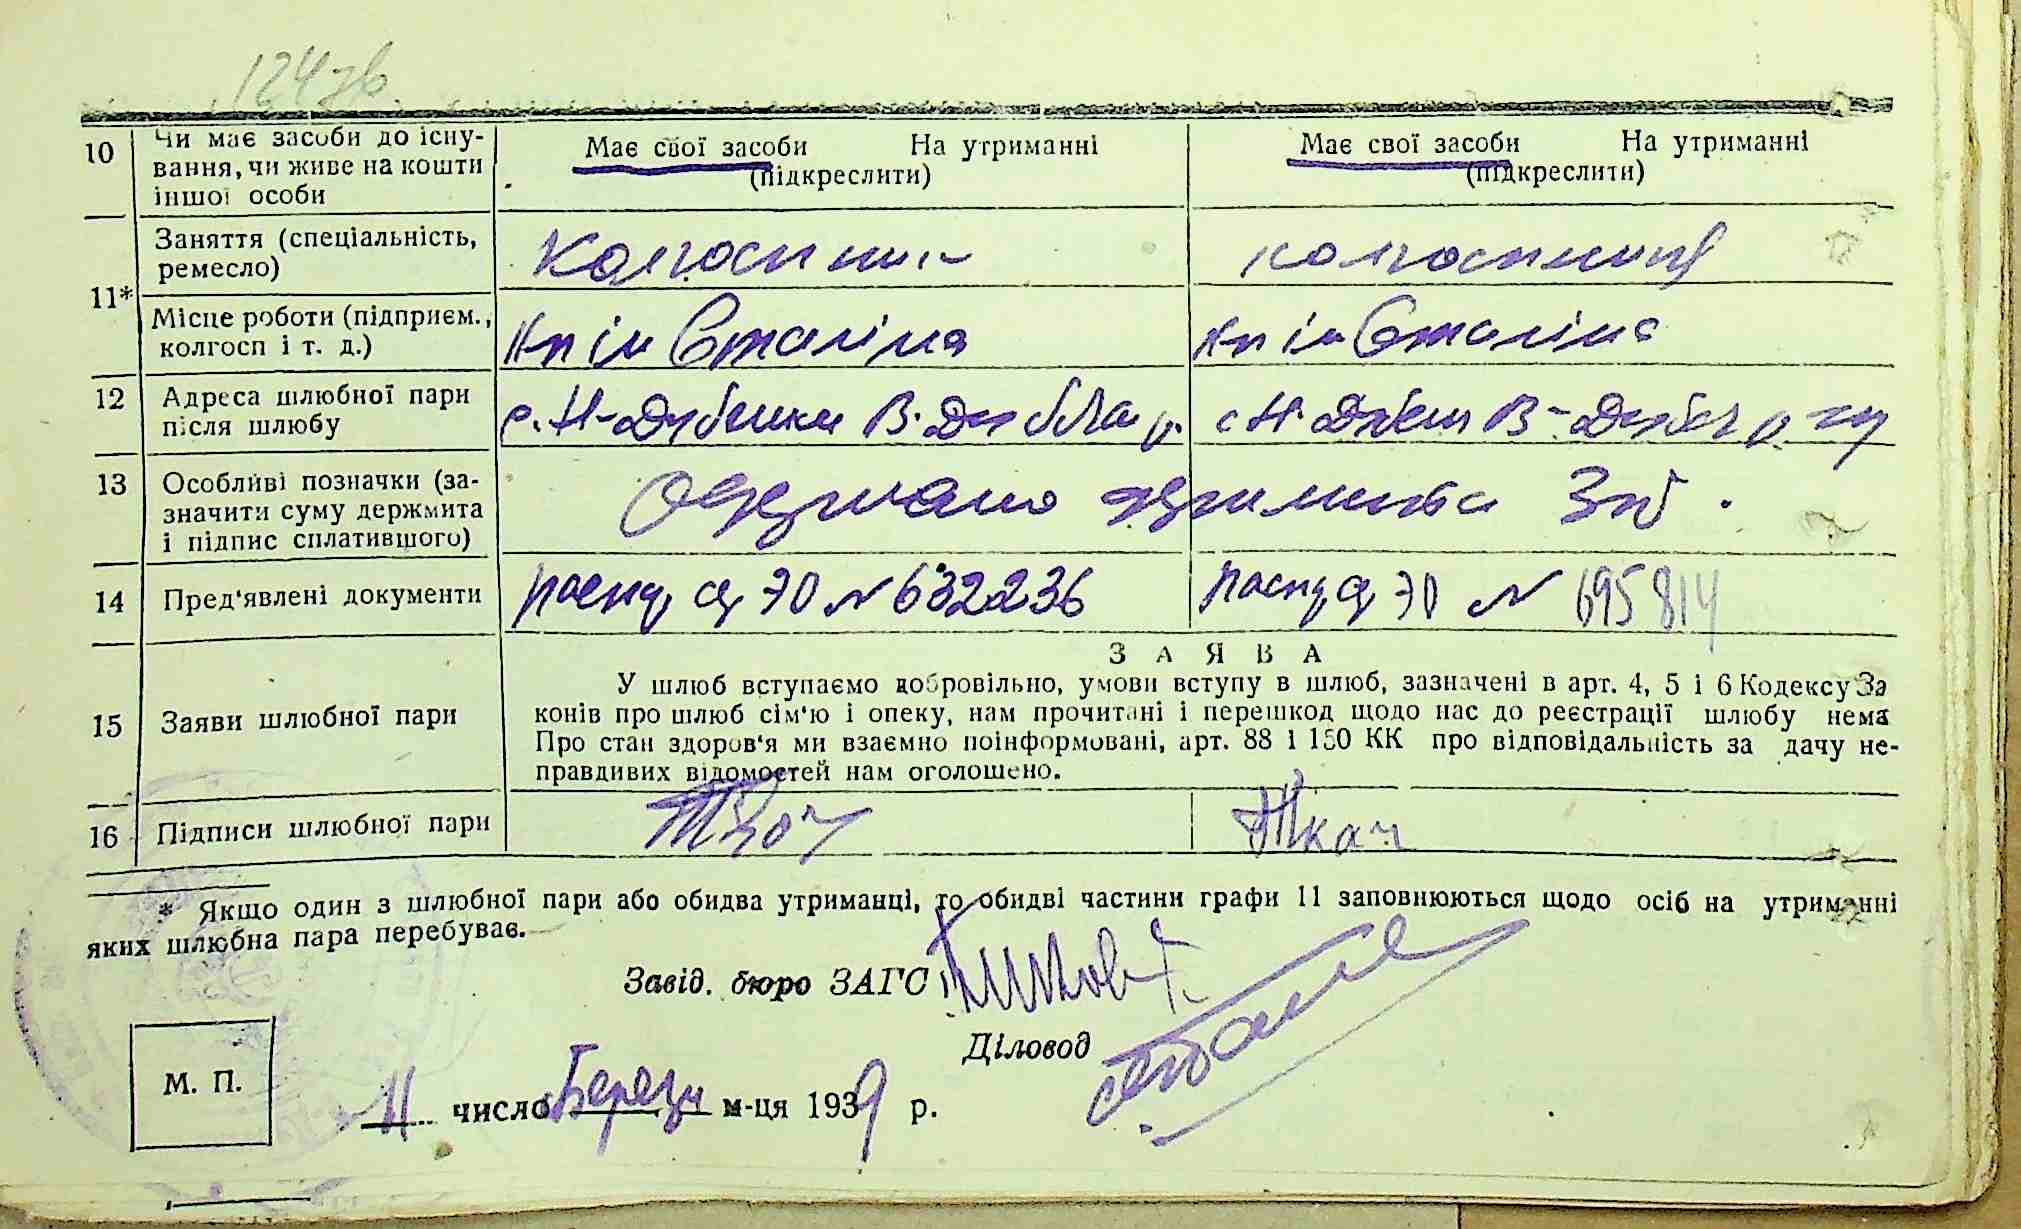 124зв
10 Чи має засоби до існу-
вання, чи живе на кошти
іншої особи
Має свої засоби На утриманні
(підкреслити)
Має свої засоби На утриманні
(підкреслити)
11* Заняття (спеціальність,
ремесло)
Колгоспник
колгоспниця
Місце роботи (підприєм.,
колгосп і т. д.)
ім Сталіна
ім Сталіна
12 Адреса шлюбної пари
після шлюбу
с. Н-Дубечки
13 Особливі позначки (за-
значити суму держмита
і підпис сплатившого)
Одержано держмита
14 Пред'явлені документи
ЭО № 632236
ЭО № 695814
З А Я В А
15 Заяви шлюбної пари
У шлюб вступаємо добровільно, умови вступу в шлюб, зазначені в арт. 4, 5 і 6 Кодексу За
конів про шлюб сім'ю і опеку, нам прочитані і перешкод щодо нас до реєстрації шлюбу нема
Про стан здоров'я ми взаємно поінформовані, арт. 88 і 150 КК про відповідальність за дачу не-
правдивих відомостей нам оголошено.
16 Підписи шлюбної пари
Ткач
* Якщо один з шлюбної пари або обидва утриманці, то обидві частини графи 11 заповнюються щодо осіб на утриманні
яких шлюбна пара перебуває.
Завід. бюро ЗАГС
Діловод
М. П.
11 число Березн м-ця 1939 р.